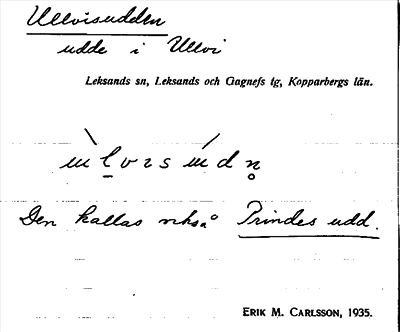 Ullvisudden
udde i Ullvi
Leksands sn, Leksands och Gagnefs tg, Kopparbergs län.
Den kallas också Prindes udd.
ERIK M. CARLSSON, 1935.